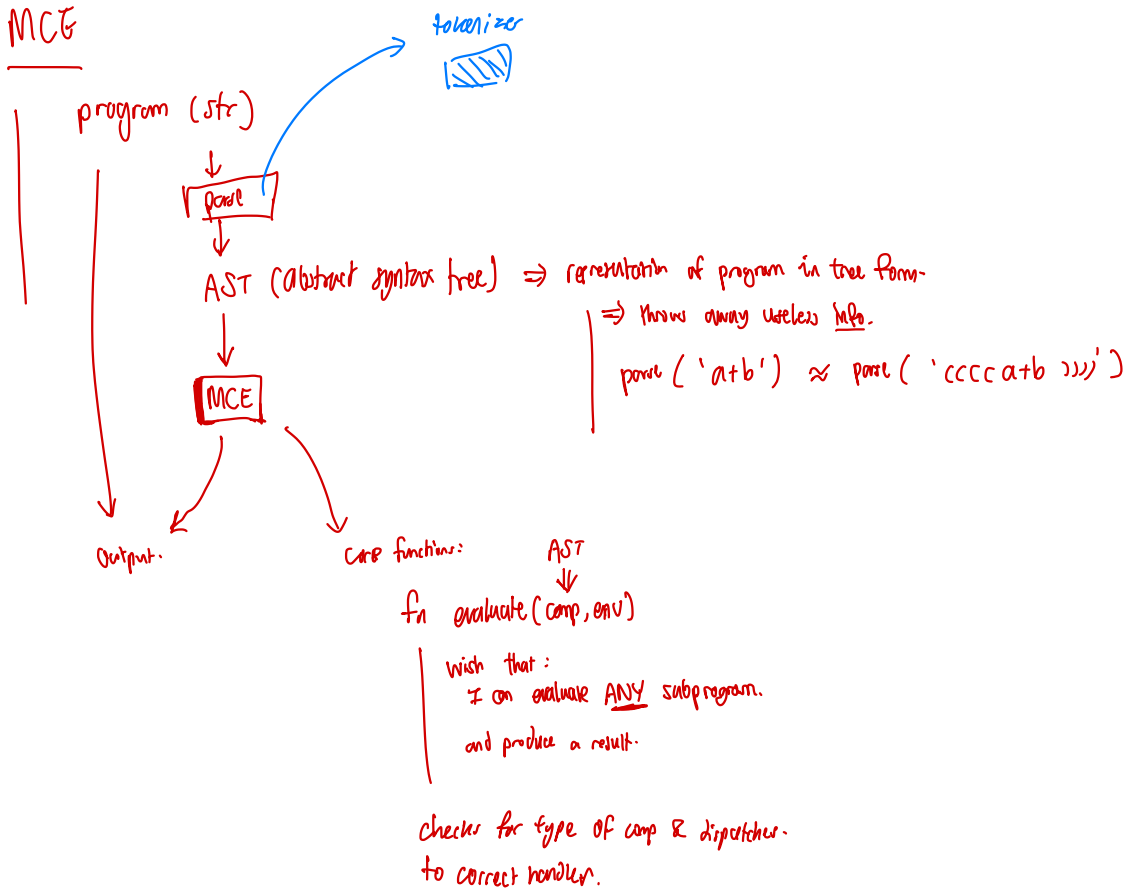 MCE
tokenizer
program (str)
parse
AST (abstract syntax tree) ⇒ representation of program in tree form.
⇒ throws away useless info.
parse ( 'a+b' ) ≈ parse ( '((((a+b ))))' )
MCE
Output.
core functions:
AST
fn evaluate(comp, env)
wish that :
I can evaluate ANY subprogram.
and produce a result.
checks for type of comp & dispatches.
to correct handler.